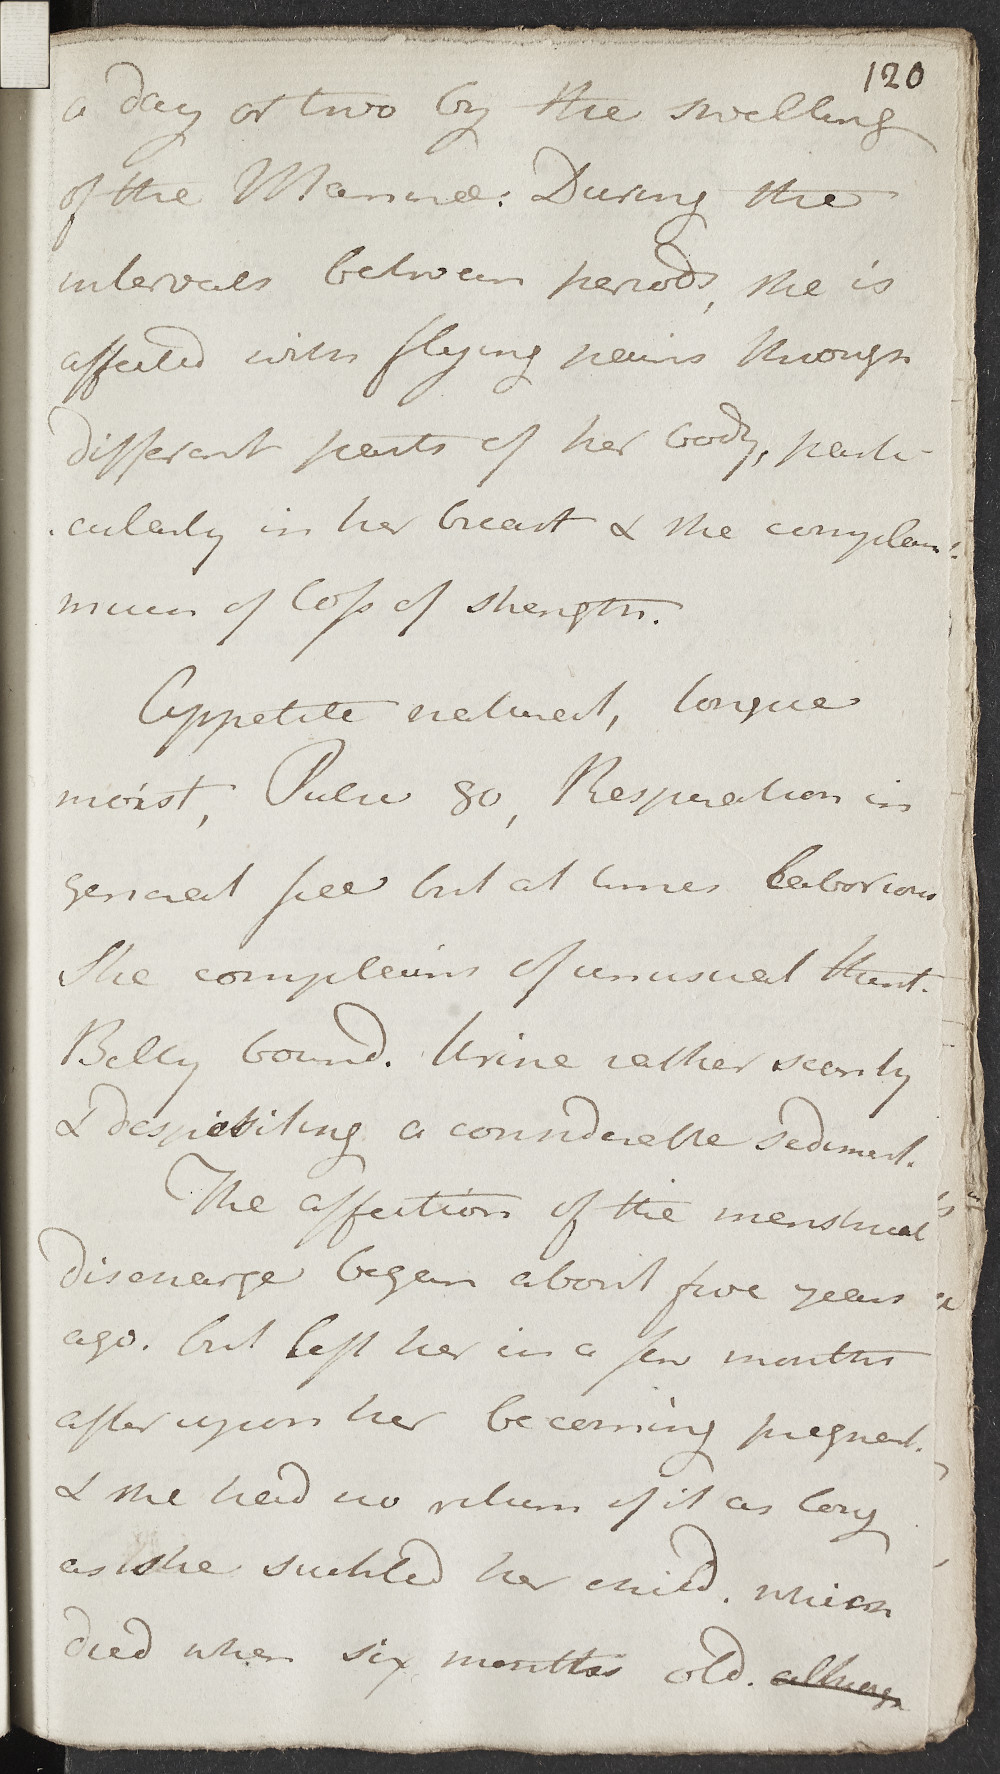 120
a day or two by the swelling
of the Mammae: During the
intervals between periods, she is
affected with flying pains through
different parts of her body, parti-
cularly in her breast & she complains
much of loss of strength.
Appetite natural, tongue
moist, Pulse 80, Respiration in
general free but at times laborious
She complains of unusual thirst.
Belly bound. Urine rather scanty
& depositing a considerable sediment.
The affection of the menstrual
discharge began about five years
ago. but left her in a few months
after upon her becoming pregnant.
& she had no return of it as long
as she suckled her child. which
died when six months old. altho'